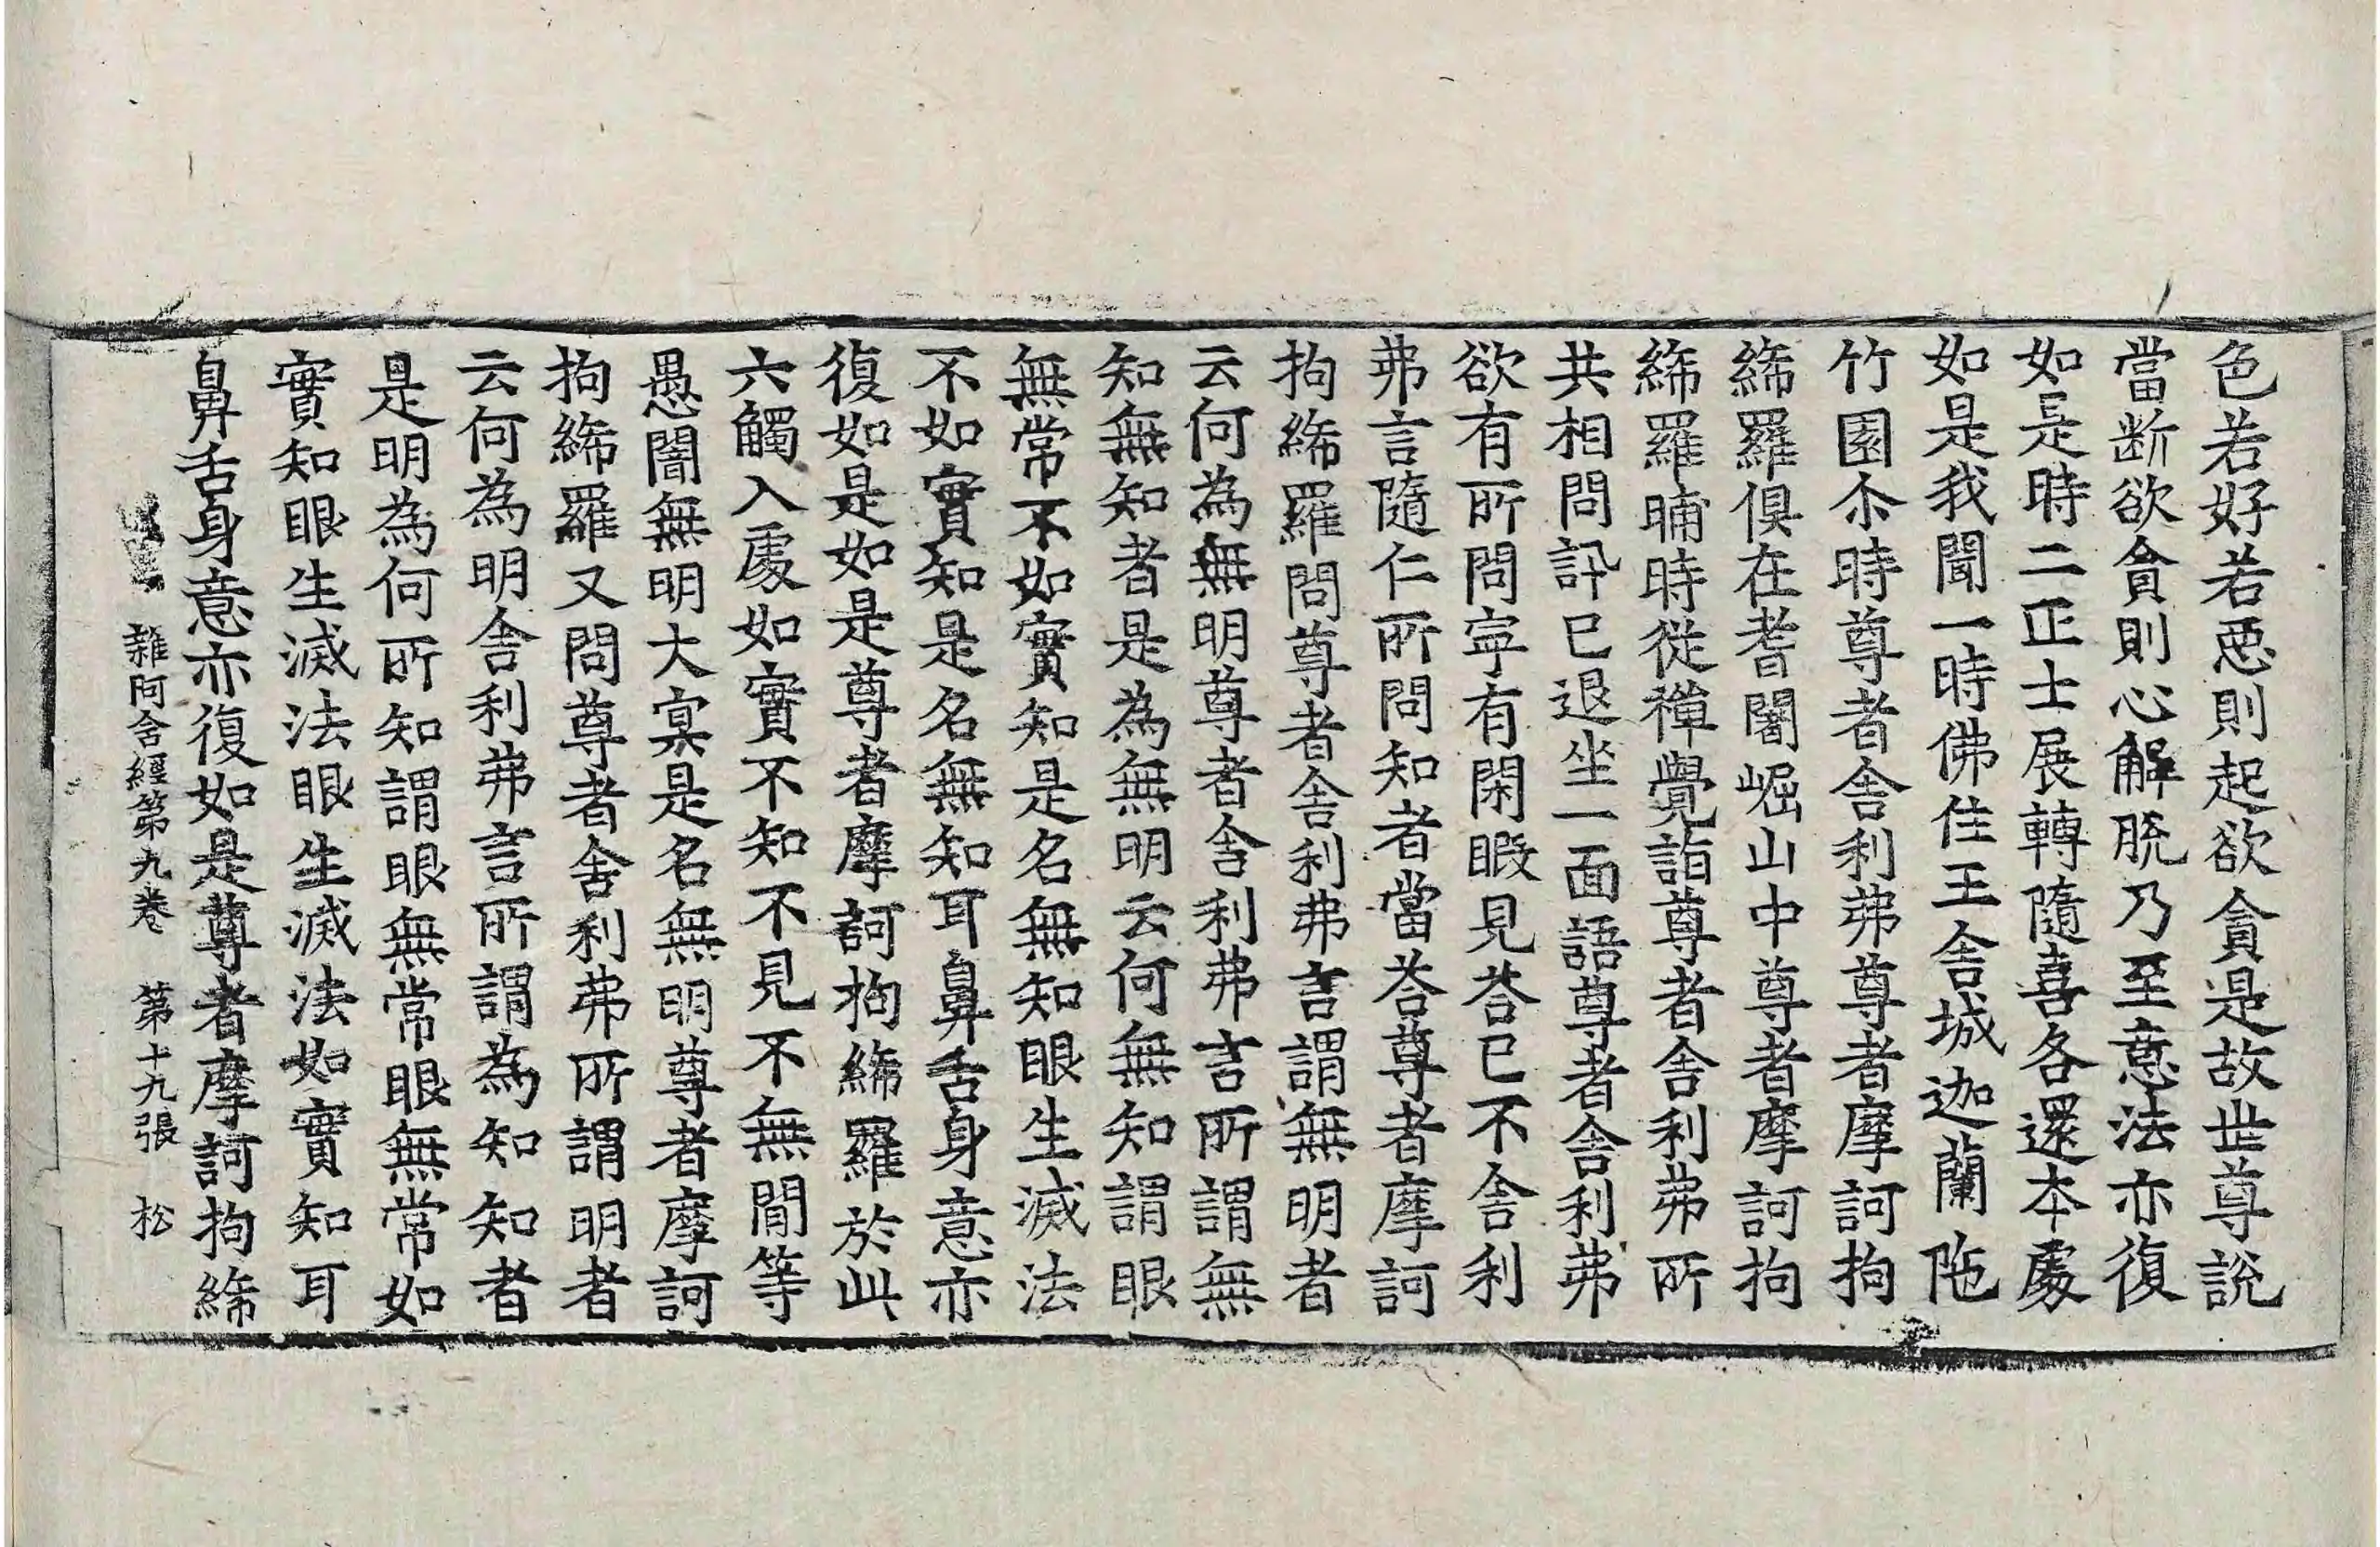 色若好若惡則起欲貪是故世尊說
當断欲貪則心解脫乃至意法亦復
如是時二正士展轉隨喜各還本處
如是我聞一時佛住王舍城迦蘭陁
竹園尒時尊者舍利弗尊者摩訶拘
絺羅俱在耆闍崛山中尊者摩訶拘
絺羅晡時從禪覺詣尊者舍利弗所
共相問訊已退坐一面語尊者舍利弗
欲有所問寜有閑暇見荅已不舍利
弗言隨仁所問知者當荅尊者摩訶
拘絺羅問尊者舍利弗言謂無明者
云何為無明尊者舍利弗言所謂無
知無知者是為無明云何無知謂眼
無常不如實知是名無知眼生滅法
不如實知是名無知耳鼻舌身意亦
復如是如是尊者摩訶拘絺羅於此
六觸入處如實不知不見不無閒等
愚闇無明大㝠是名無明尊者摩訶
拘絺羅又問尊者舍利弗所謂明者
云何為明舍利弗言所謂為知知者
是明為何所知謂眼無常眼無常如
實知眼生滅法眼生滅法如實知耳
鼻舌身意亦復如是尊者摩訶拘絺
雜阿含經第九卷 第十九張 松